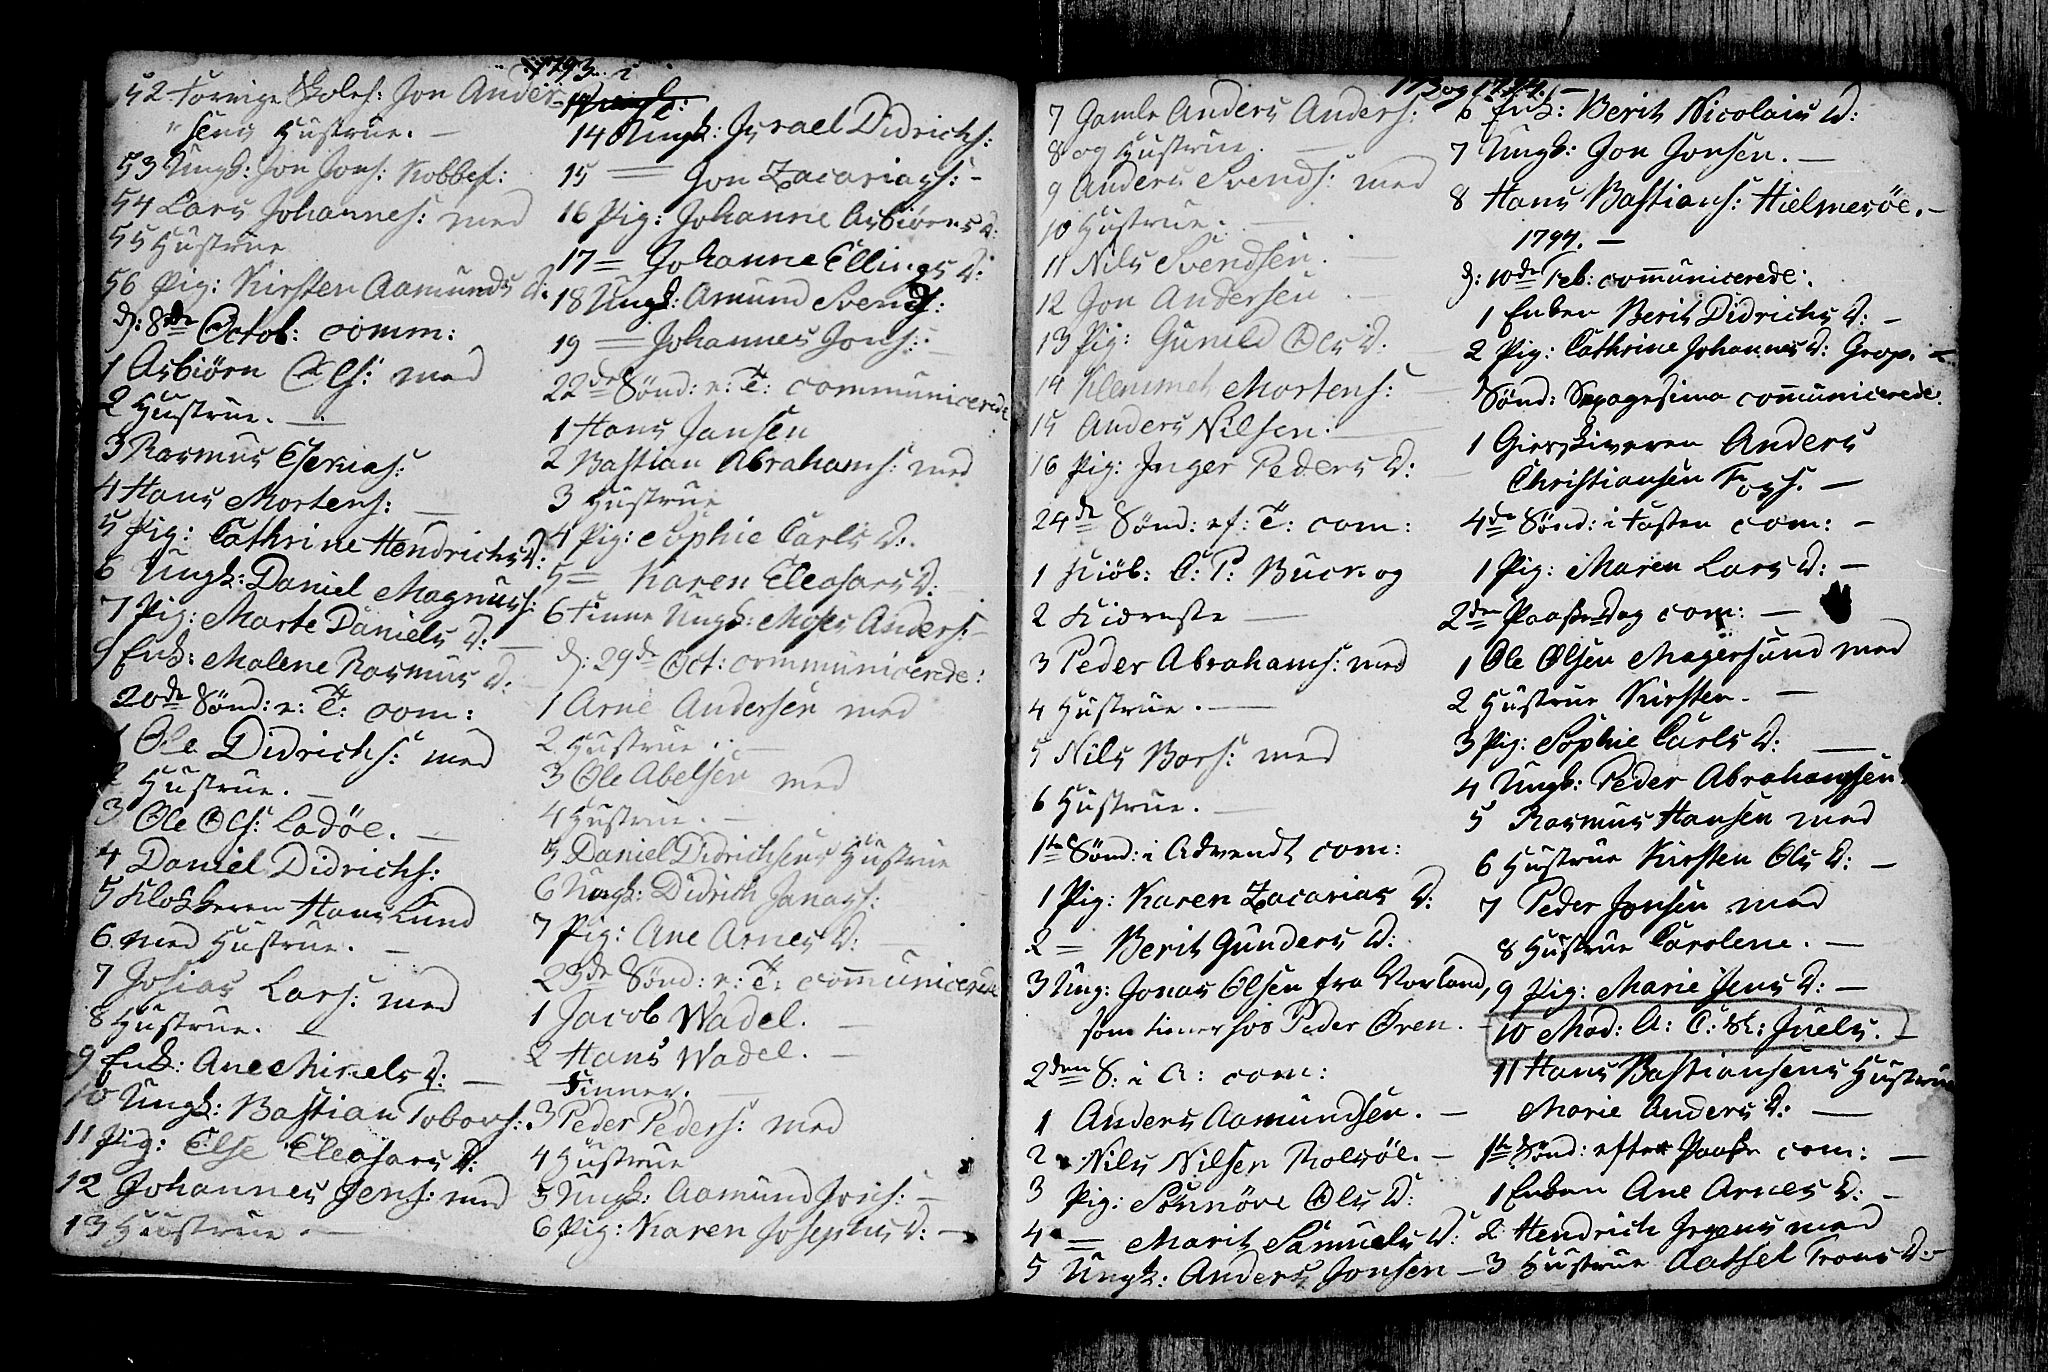 1793. i
52 Forrige Skoleh: Jon Ander-
" sens Hustrue. —
53 Ungk: Jon Jons: Kobbef:
54 Lars Johannes: med
55 Hustrue
56 Pig: Kirsten Aamunds D.
d: 8de Octob: comm:
1 Asbiørn Ols: med
2 Hustrue. —
3 Rasmus
4 Hans Mortens: —
5 Pig: Cathrine Hendrichs D:
6 Ungk: Daniel Magnus:
7 Pig: Marte Daniels D: —
8 Enk: Malene Rasmus D:
20de Sønd: e: T: com:
1 Ole Didrichs: med
2 Hustrue. —
3 Ole Ols: Ladøe. —
4 Daniel Didrichs:
5 Klokkeren Hans Lund
6 med Hustrue. —
7 Josias Lars: med
8 Hustrue. —
9 Enk: Ane Mikels D: —
10 Ungk: Bastian Tobers:
11 Pig: Else Eleasars D:
12 Johannes Jens: med
13 Hustrue —
14 Ungk: Israel Didrichs:
15 = Jon Zacarias: -
16 Pig: Johanne Asbiørns D:
17 = Johanne Ellings D:
18 Ungk: Amund Svends:
19 = Johannes Jons: -
22de Sønd: e: T: communicerede:
1 Hans Jansen
2 Bastian Abrahams: med
3 Hustrue
4 Pig: Sophie Carls D:
5 = Karen Eleasars D:
6 Finne Ungk: Moses Anders: -
d: 29de Oct: communicerede:
1 Arne Andersen med
2 Hustrue. —
3 Ole Abelsen med
4 Hustrue. —
5 Daniel Didrichsens Hustrue
6 Ungk: Didrich Janas:
7 Pig: Ane Arnes D: —
23de Sønd: e: T: communicerede
1 Jacob Wadel. —
2 Hans Wadel. —
Finner. —
3 Peder Peders: med
4 Hustrue
5 Ungk: Aamund Jons: —
6 Pig: Karen Josephus D: —
1793 og 1794. —
7 Gamle Anders Anders:
8 og Hustrue. —
9 Anders Svends: med
10 Hustrue. —
11 Nils Svendsen. —
12 Jon Andersen —
13 Pig: Guneld Ols D: —
14 Klemmet Mortens: —
15 Anders Nilsen. —
16 Pig: Inger Peders D:
24de Sønd: ef: T: com:
1 Kiøb: C: P: Buck og
2 Kiæreste —
3 Peder Abrahams: med
4 Hustrue. —
5 Nils Bars: med
6 Hustrue. —
1te Sønd: i Advendt com:
1 Pig: Karen Zacarias D:
2 = Berit Gunders D:
3 Ung: Jonas Olsen fra Vorland,
som tiener hos Peder Øren. —
2den S: i A: com:
1 Anders Aamundsen. —
2 Nils Nilsen Rolsøe. —
3 Pig: Sønnøve Ols D:
4 = Marit Samuels D:
5 Ungk: Anders Jonsen —
6 Enk: Berit Nicolais D:
7 Ungk: Jon Jonsen. —
8 Hans Bastians: Hielmesøe. -
1794. —
d: 10de Feb: communicerede:
1 Enken Berit Didrichs D: —
2 Pig: Cathrine Johannes D: Grop. —
Sønd: Sexagesima communicerede.
1 Gieskiveren Anders
Christiansen Foss. —
4de Sønd: i Fasten com: —
1 Pig: Maren Lars D: —
2den Paaske Dag com: —
1 Ole Olsen Magersund med
2 Hustrue Kirsten. —
3 Pig: Sophie Carls D: —
4 Ungk: Peder Abrahamsen.
5 Rasmus Hansen med
6 Hustrue Kirsten Ols D: —
7 Peder Jonsen med
8 Hustrue Carolene. —
9 Pig: Marie Jens D: —
10 Mad: A: C: Sk: Juels. —
11 Hans Bastiansens Hustrue
Marie Anders D: —
1te Sønd: efter Paaske com: —
1 Enken Ane Arnes D: —
2 Hendrich Irgens med
3 Hustrue Aatsel Trons D: —